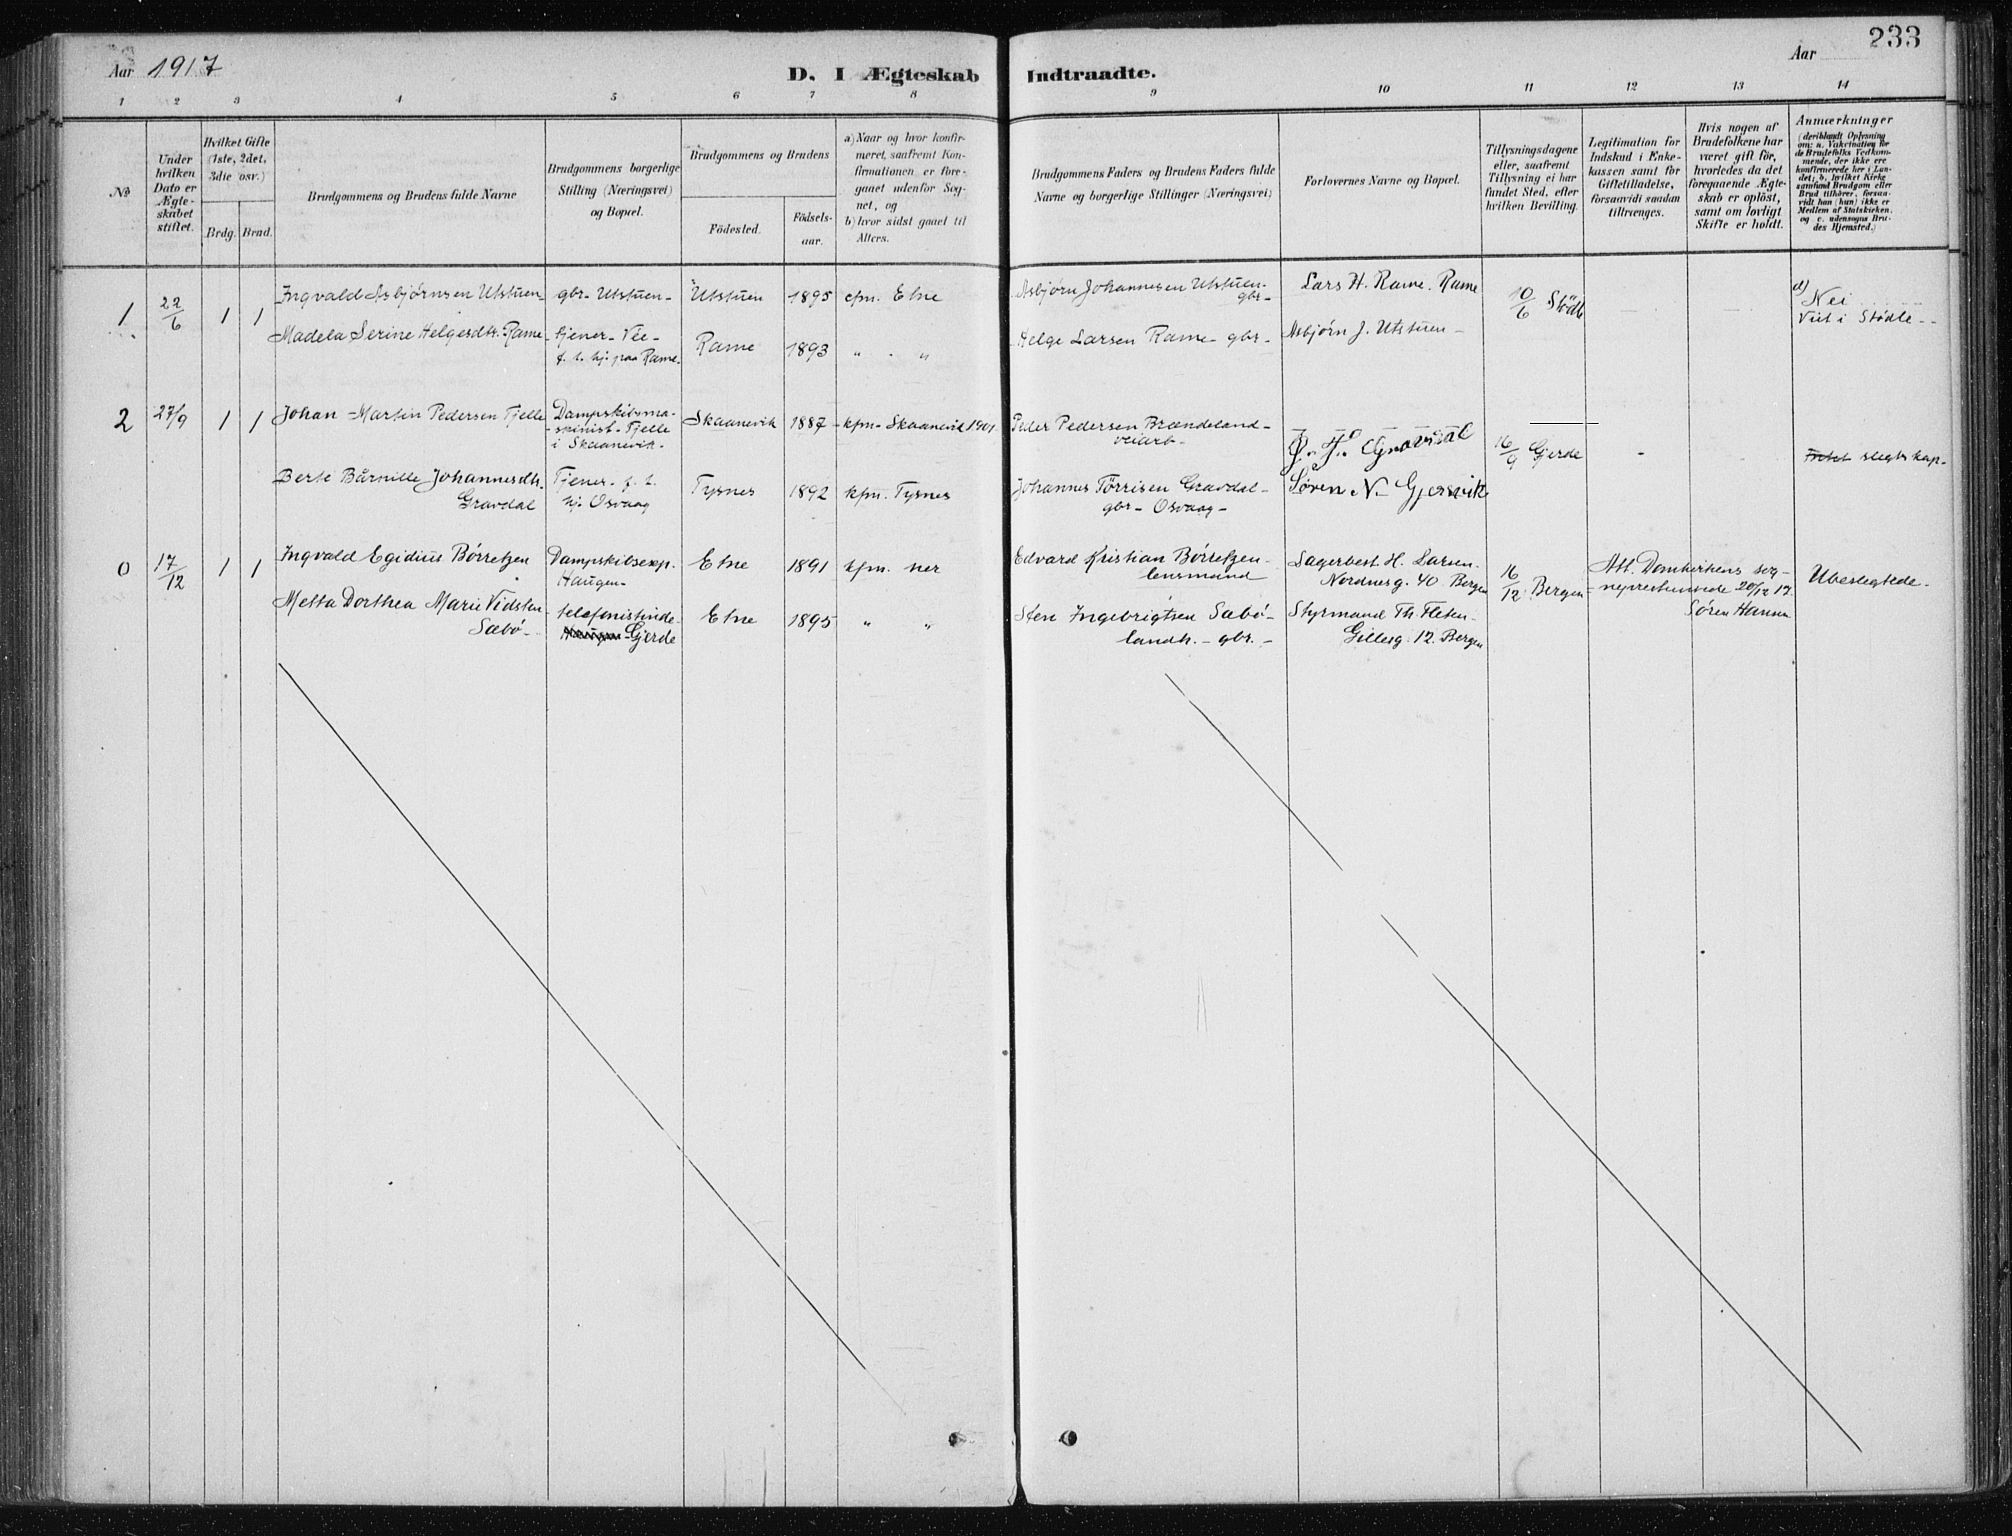 Aar 1917
D. I Ægteskab Indtraadte.
Aar
233
1 2 3 4 5 6 7 8 9 10 11 12 13 14
№
Under hvilken Dato er Ægteskabet stiftet.
Hvilket Gifte (1ste, 2det, 3die osv.)
Brdg. Brud.
Brudgommens og Brudens fulde Navne
Brudgommens borgerlige Stilling (Næringsvei) og Bopæl.
Brudgommens og Brudens
Födested.
Födselsaar.
a) Naar og hvor konfirmeret, saafremt Konfirmationen er foregaaet udenfor Sognet, og
b) hvor sidst gaaet til Alters.
Brudgommens Faders og Brudens Faders fulde Navne og borgerlige Stillinger (Næringsvei)
Forlovernes Navne og Bopæl.
Tillysningsdagene eller, saafremt Tillysning ei har fundet Sted, efter hvilken Bevilling.
Legitimation for Indskud i Enkekassen samt for Giftetilladelse, forsaavidt saadan tiltrænges.
Hvis nogen af Brudefolkene har været gift för, hvorledes da det foregaaende Ægteskab er oplöst, samt om lovligt Skifte er holdt.
Anmærkninger
(deriblandt Oplysning om: a. Vakcination for de Brudefolks Vedkommende, der ikke ere konfirmerede her i Landet; b. hvilket Kirkesamfund Brudgom eller Brud tilhörer, forsaavidt han (hun) ikke er Medlem af Statskirken, og c. udensogns Brudes Hjemsted.)
1 22/6 1 1 Ingvald Asbjørnsen Utstuen gbr. Utstuen Utstuen 1895 cfm. Etne Asbjørn Johannesen Utstuen gbr. Lars H. Rame. Rame 10/6 Stödle d) Nei
Viet i Stödle
Madela Serine Helgesdtr. Rame tjener. Vie f. t. hj. paa Rame. Rame 1893 " " Helge Larsen Rame gbr. Asbjørn J. Utstuen
2 27/9 1 1 Johan Martin Pedersen Tjelle Dampskibsmaskinist. Tjelle i Skaanevik. Skaanevik 1887 kfm. Skaanevik 1901 Peder Pedersen Brændeland veiarb. 16/9 Gjerde - slegtskap.
Berte Bårnille Johannesdtr. Gravdal Tjener. f. t. hj. Osvaag Tysnes 1892 kfm. Tysnes Johannes Tørrisen Gravdal gbr. Osvaag Søren N. Gjersvik
0 17/12 1 1 Ingvald Egidius Børretzen Dampskibsexp. Haugen Etne 1891 kfm. her Edvard Kristian Børretzen lensmand Lagerbest. H. Larsen. Nordnesg. 40 Bergen 16/12 Bergen Att. Domkirkens sogneprestembede 20/12 17. Søren Hansen Ubeslegtede.
Metta Dorthea Marie Vidsten Sæbø telefonistinde Haugen Gjerde Etne 1895 " " Sten Ingebrigtsen Sæbø landh. gbr. Styrmand Th. Fleten Gillesg. 12. Bergen